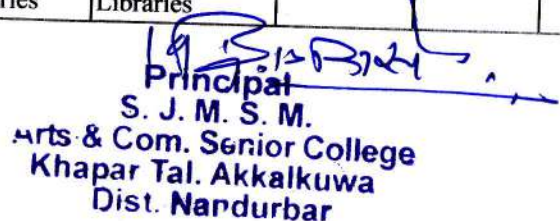 Libraries
Principal
S. J. M. S. M.
Arts & Com. Senior College
Khapar Tal. Akkalkuwa
Dist. Nandurbar